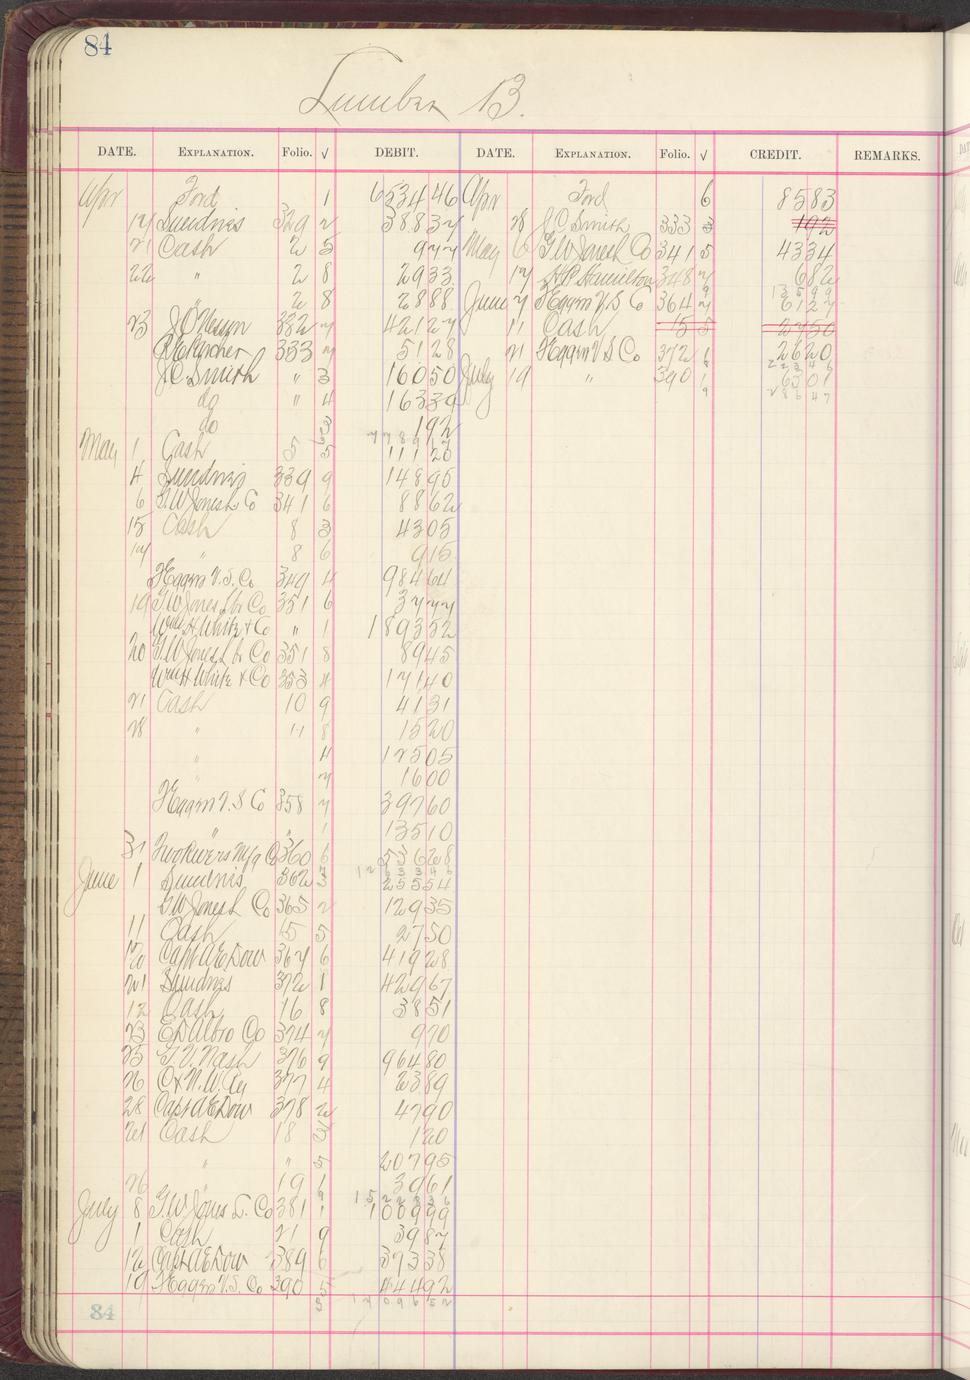 84
Lumber B.
DATE. EXPLANATION. Folio. √ DEBIT. DATE. EXPLANATION. Folio. √ CREDIT. REMARKS.
Apr Ford 1 6534 46 Apr Ford 6 85 83
17 Sundries 329 2 388 37 28 J C Smith 333 3 1 92
21 Cash 2 5 9 77 May 6 G W Jones L Co 341 5 43 34
22 " 2 8 29 33 17 A P Hamilton 348 2 6 82
" 2 8 28 88 June 7 Haggn V. S Co 364 7 61 27
23 332 7 421 27 11 Cash 15 5 27 50
333 7 51 28 21 Haggn V S Co 372 6 26 20
J. C. Smith " 3 160 50 July 19 " 390 1 65 01
do " 4 163 39
do 3 1 92
May 1 Cash 5 5 111 20
4 Sundries 339 9 148 95
6 G. W. Jones L Co 341 6 88 62
15 Cash 8 3 43 05
17 " 8 6 9 15
Haggn V. S. Co 349 4 984 64
19 G. W. Jones Lbr Co 351 6 37 77
Wm H. White & Co " 1 1893 52
20 G. W. Jones Lbr Co 351 8 89 45
Wm H White & Co 353 4 171 40
21 Cash 10 9 41 31
28 " 11 8 15 20
" 4 125 05
" 7 16 00
Haggn V. S Co 358 7 397 60
" " 1 135 10
31 Two Rivers Mfg Co 360 6 536 28
June 1 Sundries 362 3 255 54
G. W. Jones L Co 365 2 129 35
11 Cash 15 5 27 50
Capt A E Dow 367 6 419 28
21 Sundries 372 1 429 67
12 Cash 16 8 38 51
23 E D Albro Co 374 7 9 70
25 G. V. Nash 376 9 964 80
26 C & N. W. Ry 377 4 23 89
28 Capt A E Dow 378 2 47 90
21 Cash 18 3 1 20
" " 5 207 95
26 19 1 39 61
July 8 G. W. Jones L. Co 381 1 1009 99
1 Cash 21 9 39 87
12 Capt A E Dow 389 6 373 38
19 Haggn V. S. Co 390 5 444 92
84